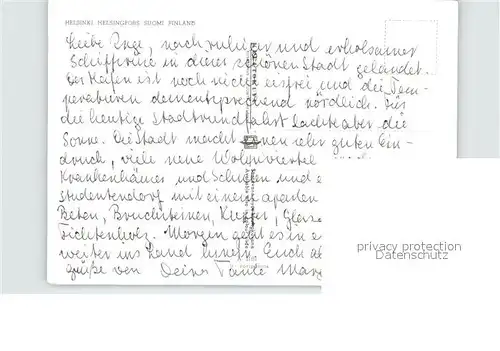 HELSINKI HELSINGFORS SUOMI FINLAND
Liebe Inge, nach ruhiger und erholsamer
Schiffsreise in dieser schönen Stadt gelandet.
Der Hafen ist noch nicht eisfrei und die Tem-
peraturen dementsprechend nördlich. Für
die heutige Stadtrundfahrt lachte aber die
Sonne. Die Stadt macht einen sehr guten Ein-
druck, viele neue Wohnviertel
Krankenhäuser und Schulen und e
Studentendorf mit einem aparten
Beton, Bruchsteinen, Kiefer, Glas
Fichtenholz. Morgen geht es in e
weiter ins Land hinein. Euch al
grüße von Deiner Tante Marg
privacy protection
Datenschutz